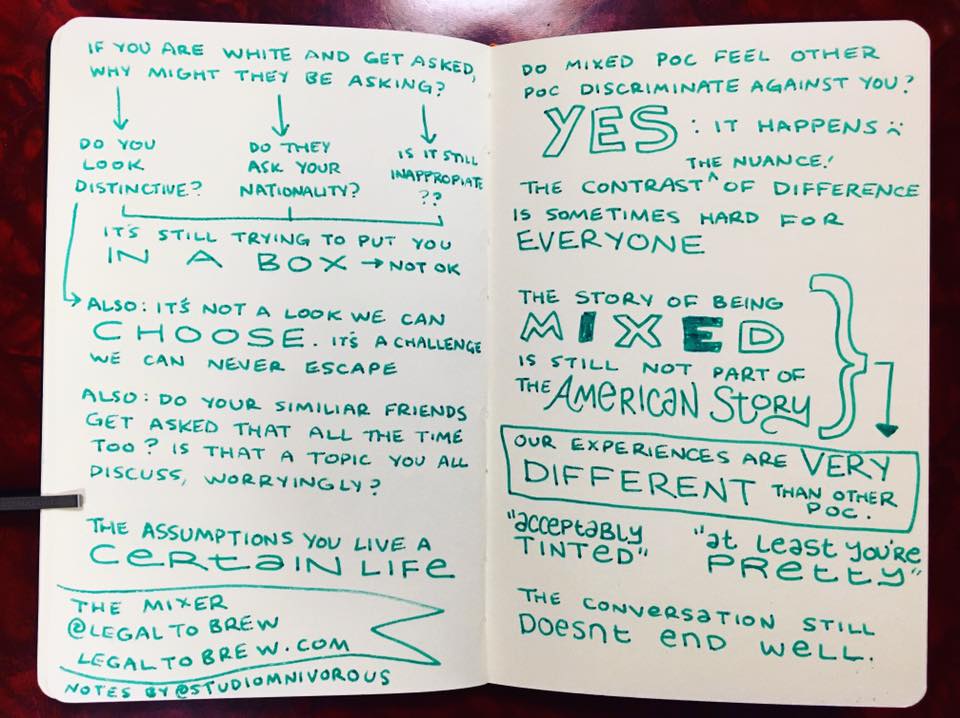 IF YOU ARE WHITE AND GET ASKED,
WHY MIGHT THEY BE ASKING?
DO YOU
LOOK
DISTINCTIVE?
DO THEY
ASK YOUR
NATIONALITY?
IS IT STILL
INAPPROPIATE
??
IT'S STILL TRYING TO PUT YOU
IN A BOX → NOT OK
ALSO: IT'S NOT A LOOK WE CAN
CHOOSE. IT'S A CHALLENGE
WE CAN NEVER ESCAPE
ALSO: DO YOUR SIMILIAR FRIENDS
GET ASKED THAT ALL THE TIME
TOO? IS THAT A TOPIC YOU ALL
DISCUSS, WORRYINGLY?
THE ASSUMPTIONS YOU LIVE A
CERTAIN LIFE
THE MIXER
@LEGALTOBREW
LEGALTOBREW.COM
NOTES BY @STUDIOMNIVOROUS
DO MIXED POC FEEL OTHER
POC DISCRIMINATE AGAINST YOU?
YES: IT HAPPENS :(
THE NUANCE!
THE CONTRAST ^ OF DIFFERENCE
IS SOMETIMES HARD FOR
EVERYONE
THE STORY OF BEING
MIXED
IS STILL NOT PART OF
THE AMERICAN STORY
OUR EXPERIENCES ARE VERY
DIFFERENT THAN OTHER
POC.
"ACCEPTABLY
TINTED"
"AT LEAST YOU'RE
PRETTY"
THE CONVERSATION STILL
DOESNT END WELL.